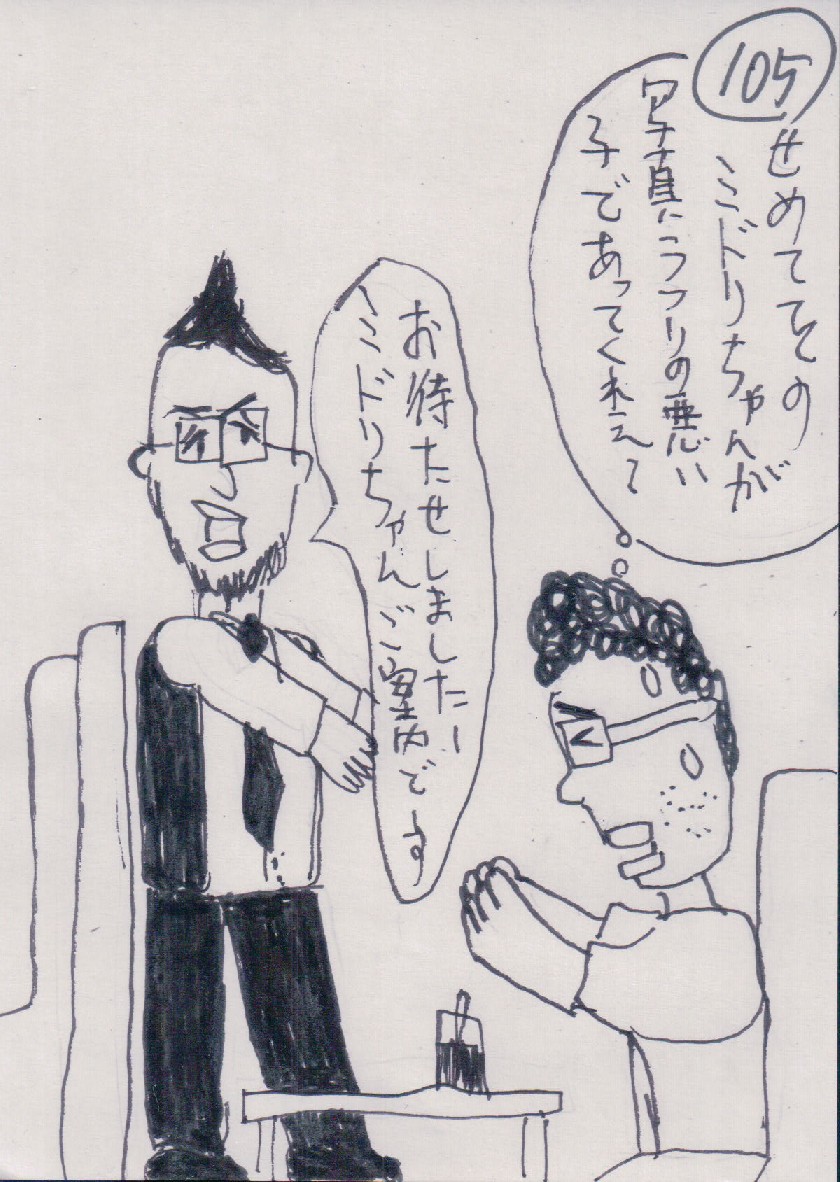 105
せめてその
ミドリちゃんが
写真にうつりの悪い
子であってくれえて
お待たせしましたー
ミドリちゃんご案内です